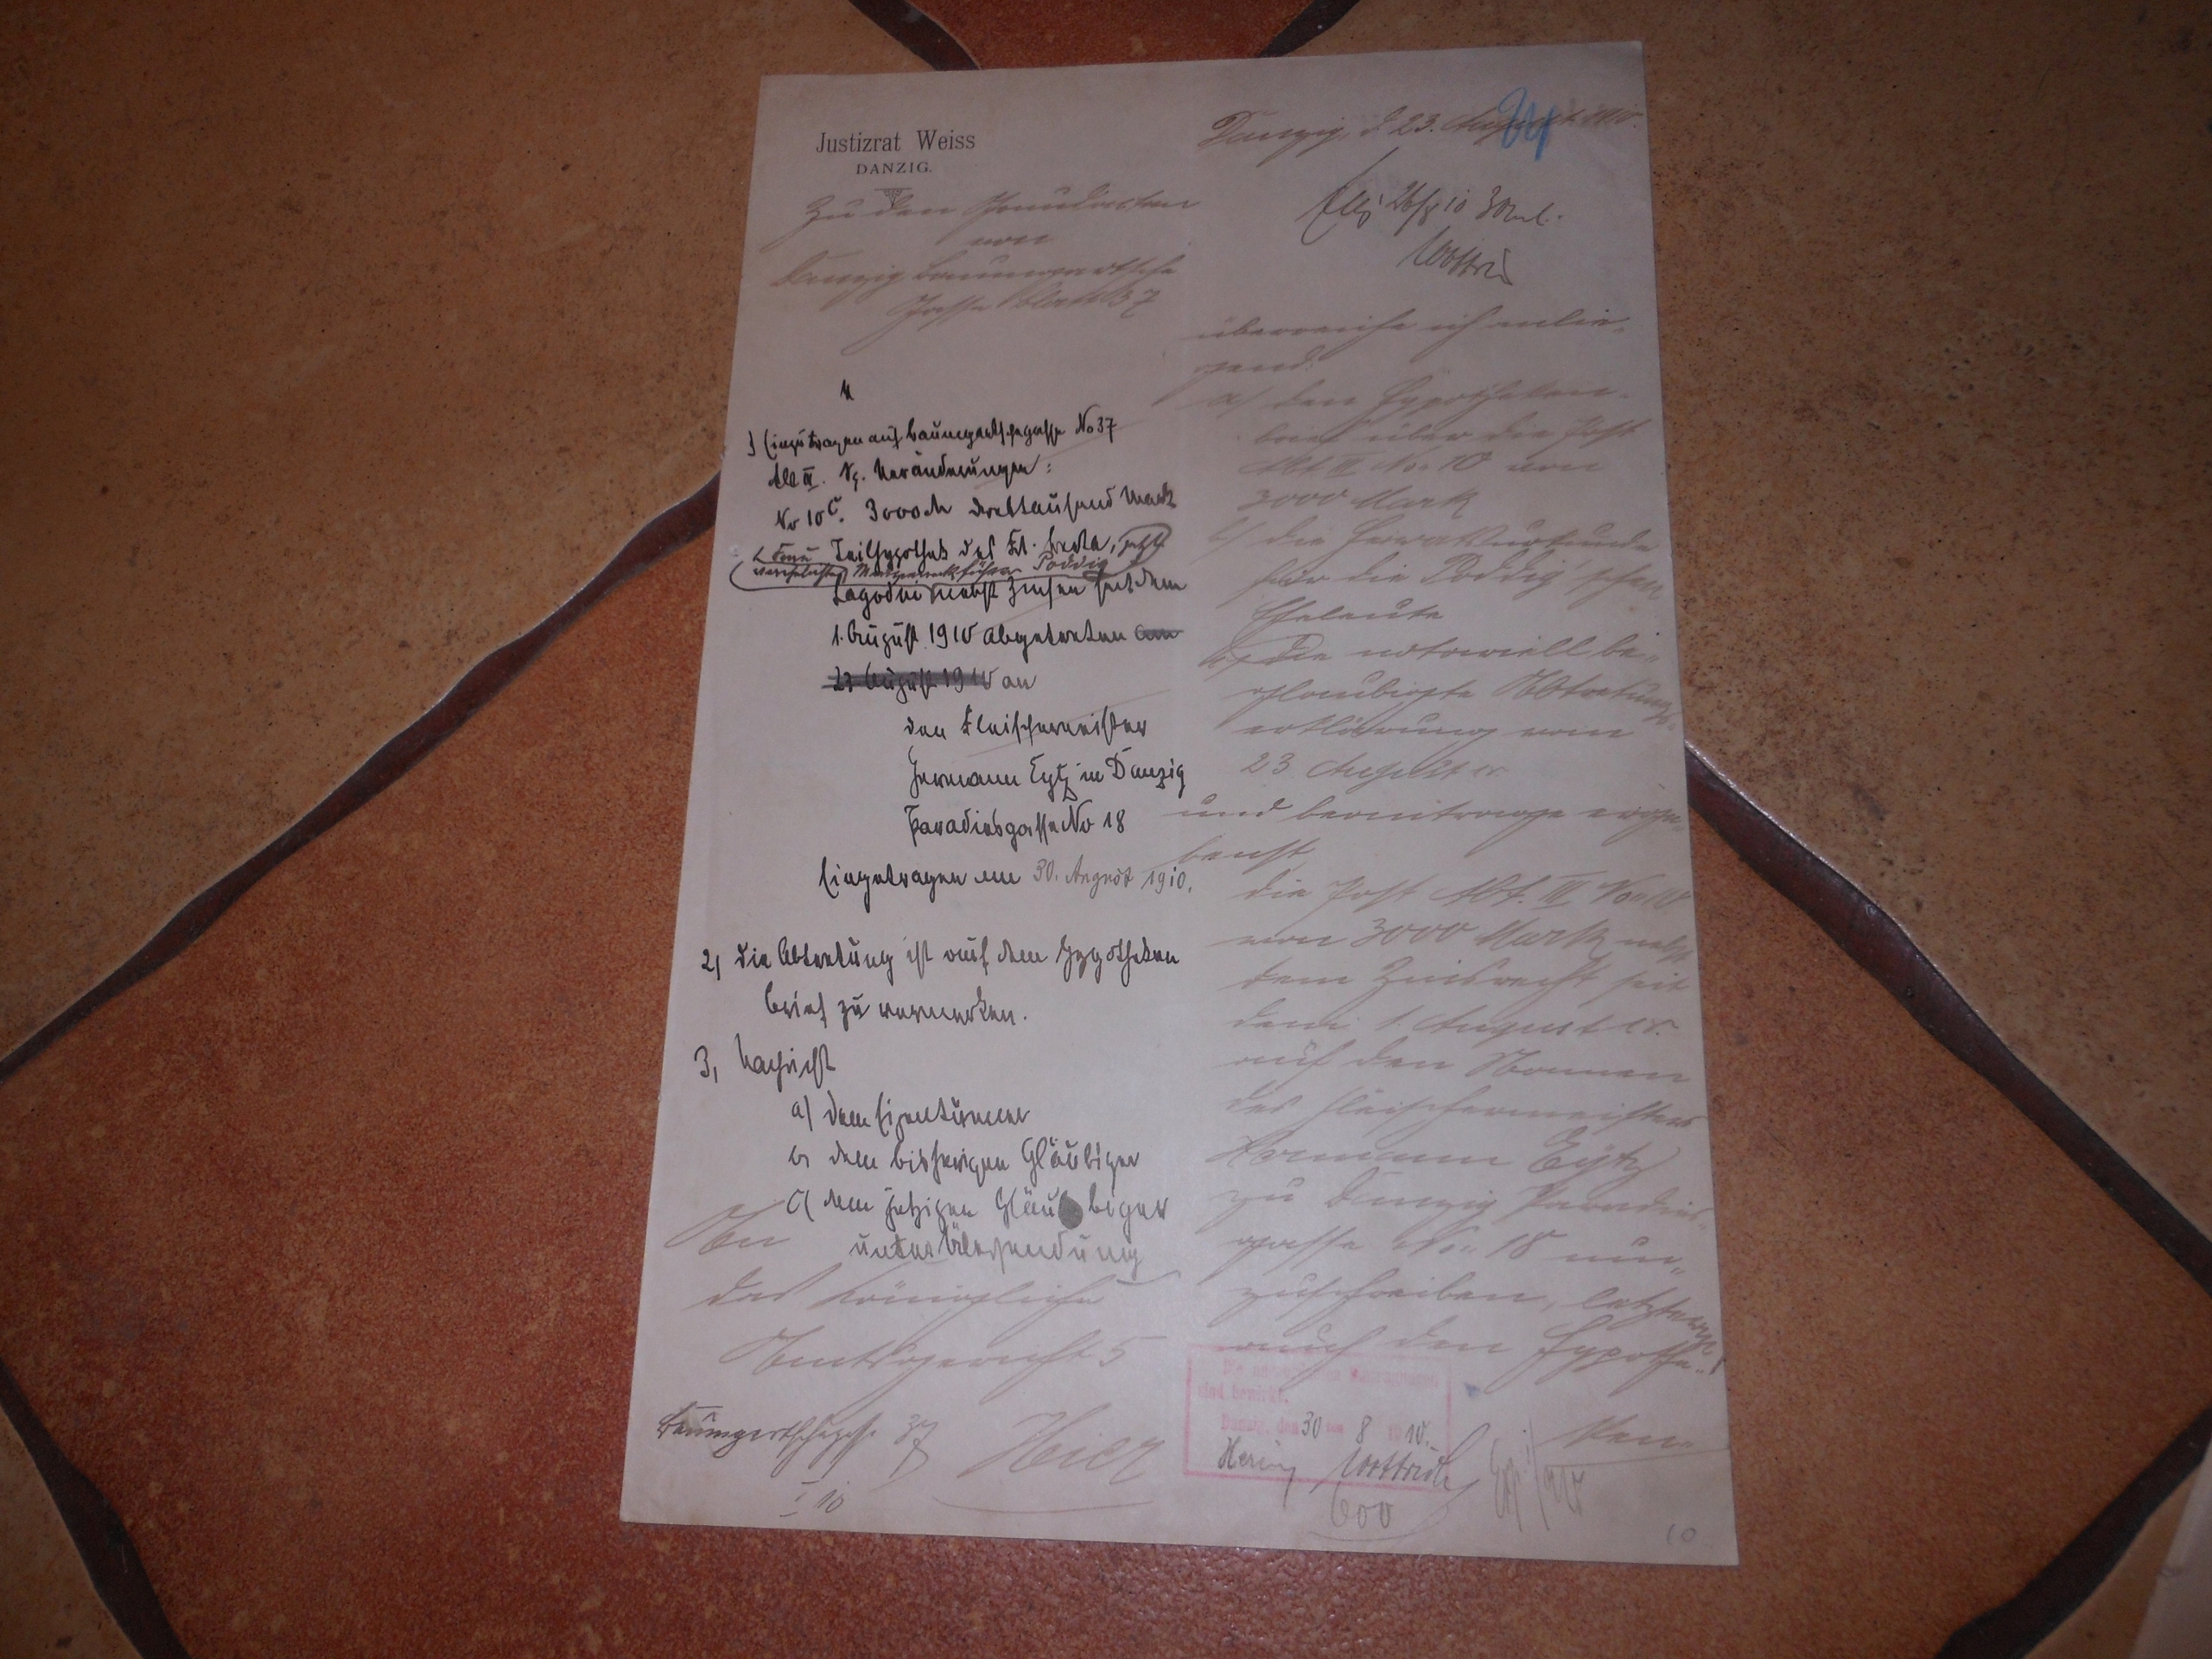 Justizrat Weiss
DANZIG.
Danzig, d 23. August 1910.
Zu den Grundacten
von
Danzig Baumgartsche
Gasse Blatt 37
überreiche ich anlie-
gend:
a) den Hypotheken-
brief über die Post
Abt III No 10 von
3000 Mark
b) die Heiratsurkunde
für die Poddig'schen
Eheleute
c) die notariell be-
glaubigte Abtretungs-
erklärung vom
23 August cr
und beantrage erge-
benst
die Post Abt. III No 10
von 3000 Mark nebst
dem Zinsrecht seit
dem 1. August cr.
auf den Namen
des Fleischermeisters
Hermann Eytz
zu Danzig Paradies-
gasse No. 18 um-
zuschreiben, letzteres
auch den Hypothe-
ken-
1) Einzutragen auf Baumgartschegasse No 37
Abt III. Sp. Veränderungen:
No 10 c. 3000 M dreitausend Mark
Teilhypothek des Frl. Berta, jetzt
verehelichte Poddig
Lagodni nebst Zinsen seit dem
1. August 1910 abgetreten am
23 August 1910 an
den Fleischermeister
Hermann Eytz in Danzig
Paradiesgasse No 18
Eingetragen am 30. August 1910.
2) Die Abtretung ist auf dem Hypotheken
brief zu vermerken.
3) Nachricht
a) dem Eigentümer
b) dem bisherigen Gläubiger
c) dem jetzigen Gläubiger
unter Übersendung
An
das Königliche
Amtsgericht 5
Hier
Baumgartschegasse 37
I 10
sind bewirkt.
Danzig, den 30 ten 8 1910.
Hering
600
10